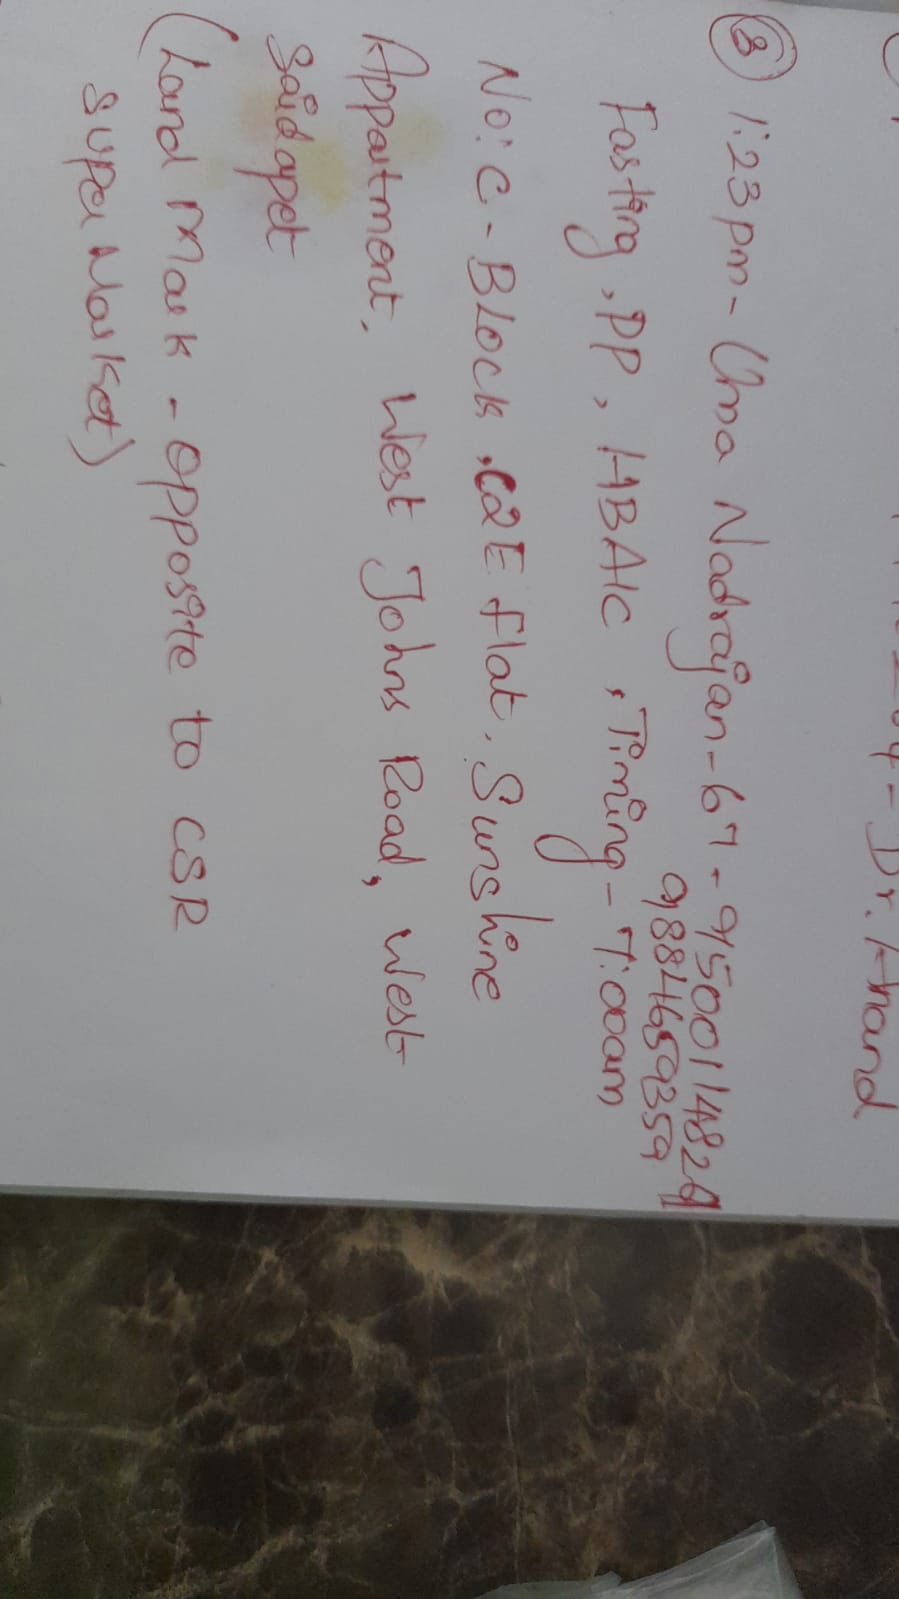 - Dr. Anand
8 1:23pm - Uma Nadrajan - 67 - 9500114829
9884659359
Fasting, PP, HBA1C, Timing - 7:00am
No: C - Block, C2E flat, Sunshine
Appartment, West Johns Road, West
Saidapet
(Land Mark - opposite to CSR
super Market)